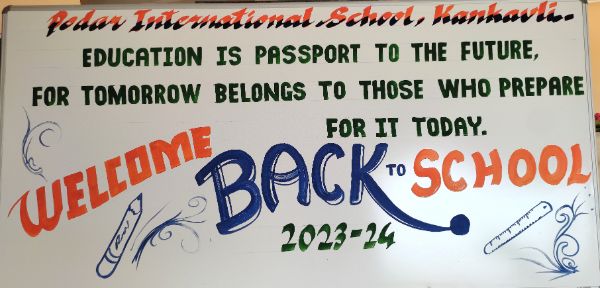 Podar International School, Kankavli.
EDUCATION IS PASSPORT TO THE FUTURE,
FOR TOMORROW BELONGS TO THOSE WHO PREPARE
FOR IT TODAY.
WELCOME BACK TO SCHOOL
2023-24